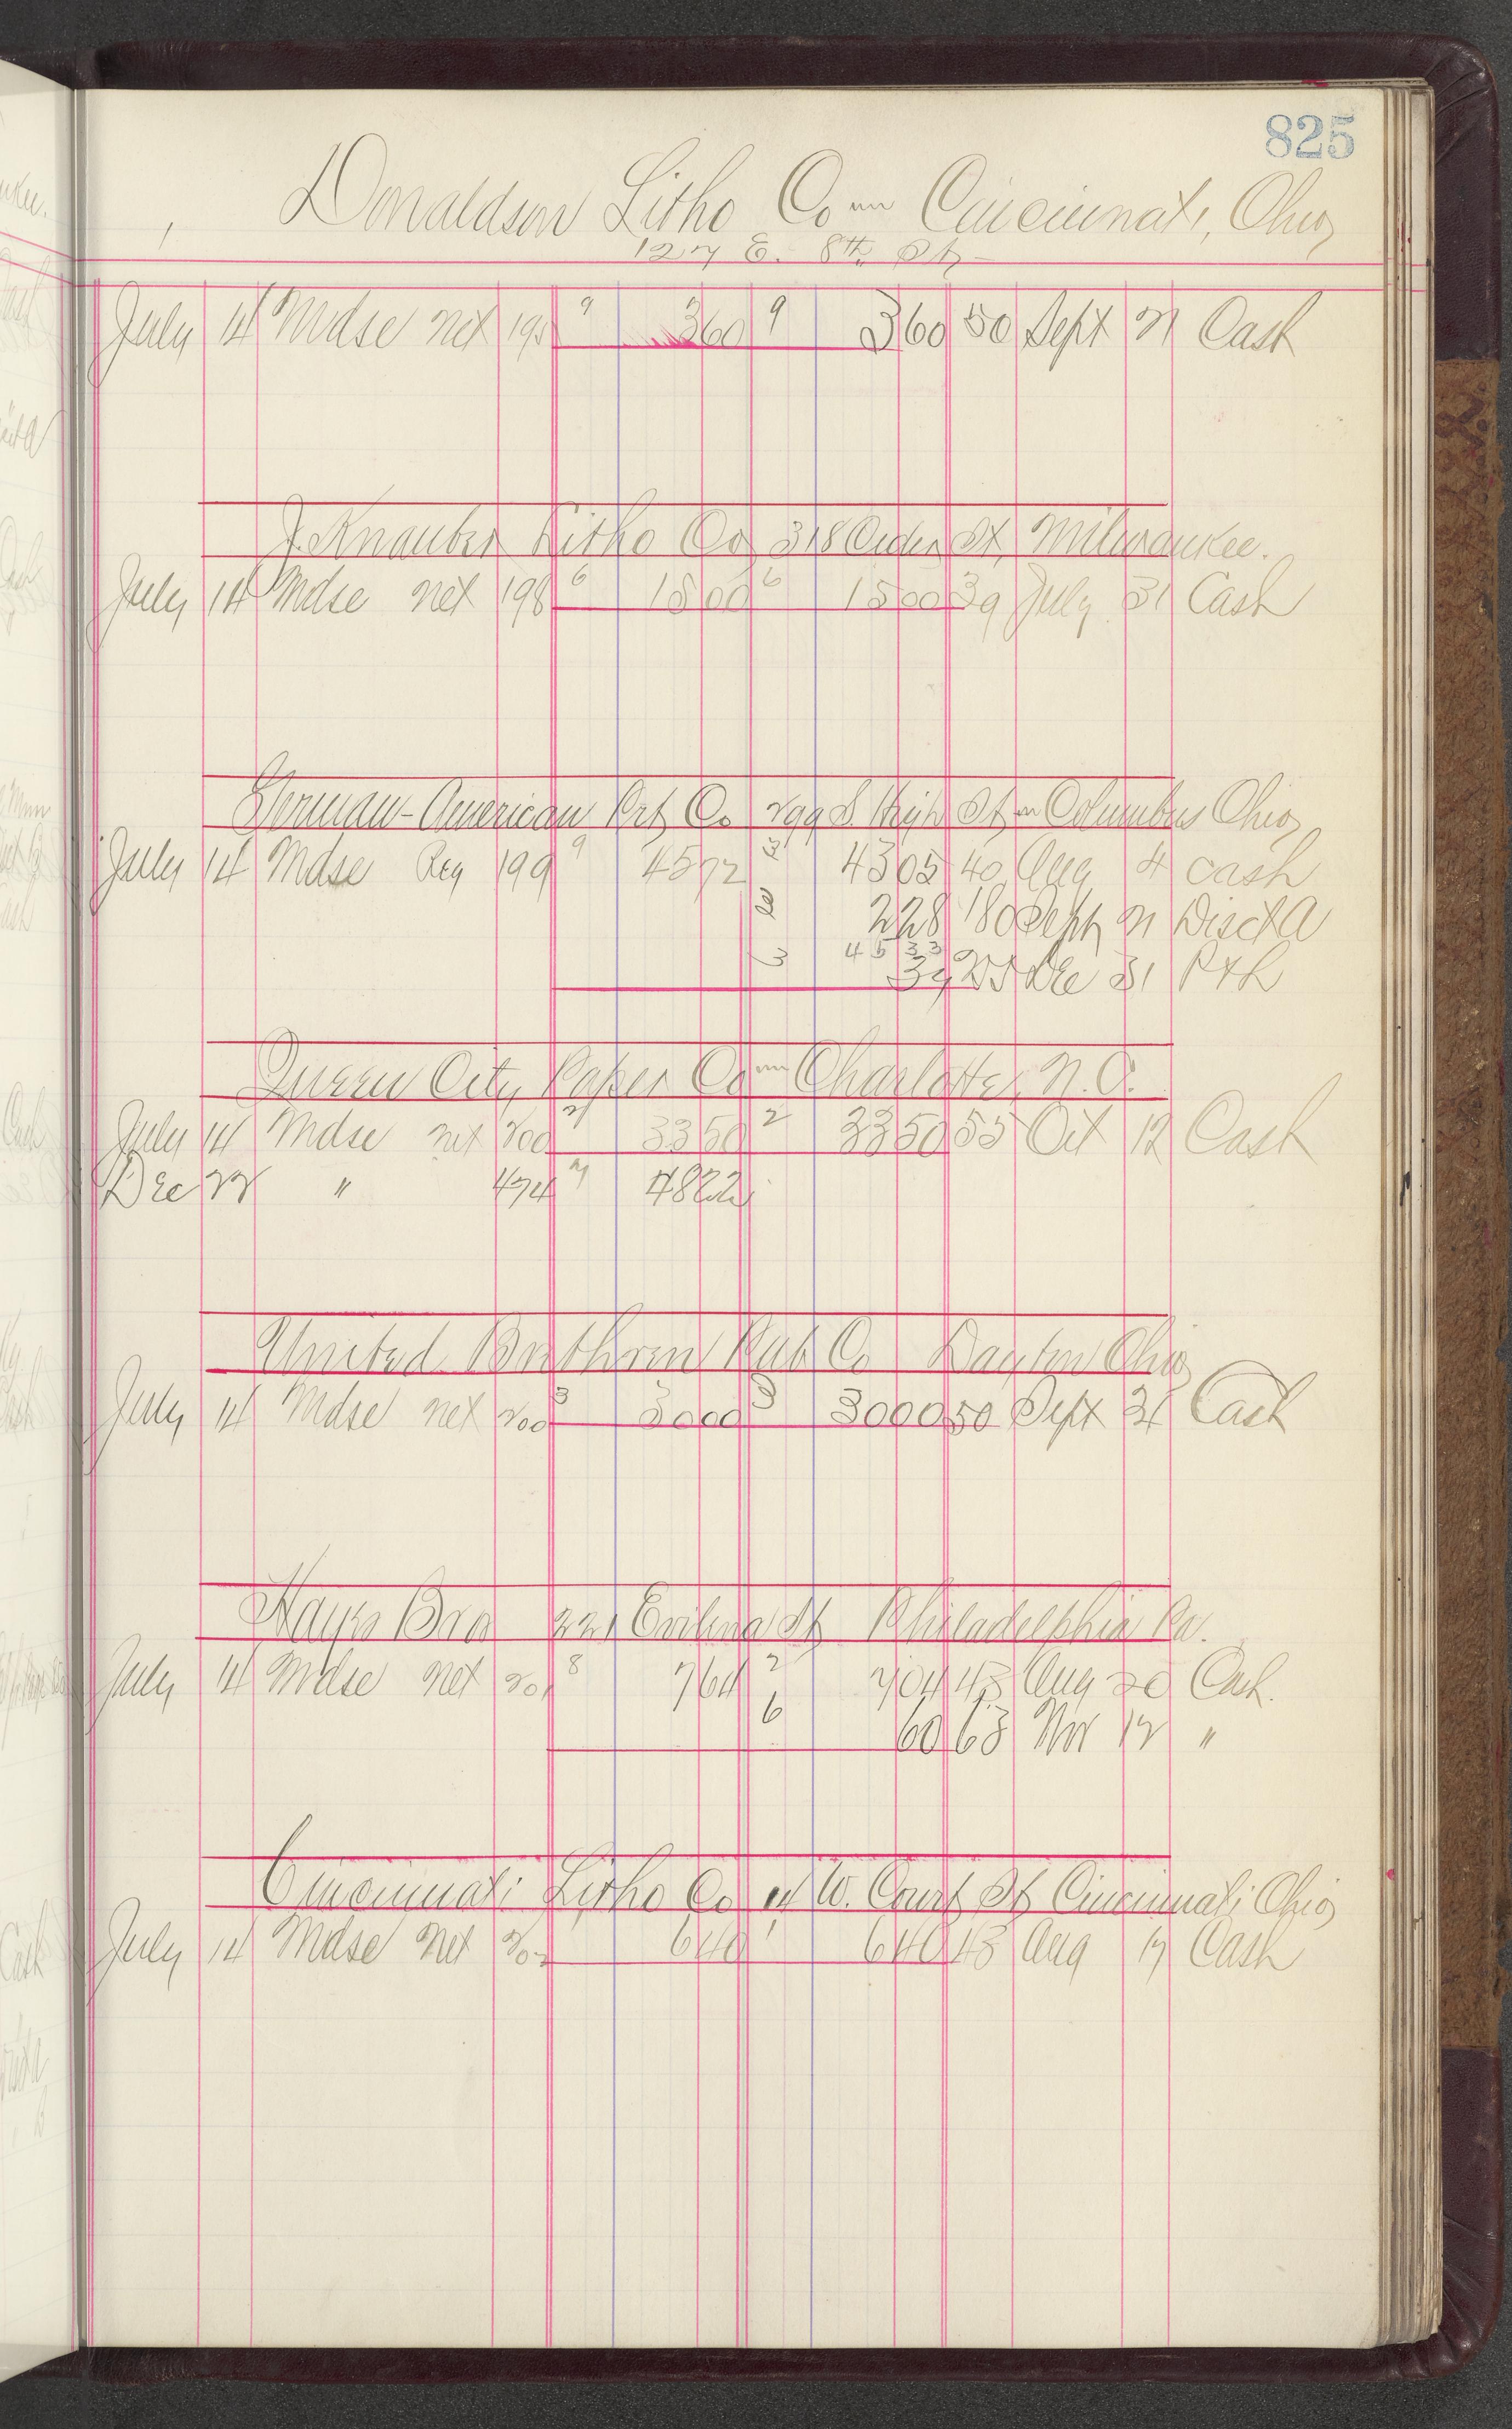 825
Donaldson Litho Co " Cincinnati, Ohio
127 E. 8th St
July 14 Mdse net 195 9 360 9 360 50 Sept 21 Cash
J. Knauber Litho Co 318 Cedar St, Milwaukee.
July 14 Mdse net 198 6 1500 6 1500 39 July 31 Cash
German-American Prt Co 299 S. High St " Columbus Ohio
July 14 Mdse Reg 199 9 4572 4305 40 Aug 4 Cash
228 180 Sept 21 Disct A
4533
3 39 Dec 31 P & L
Queen City Paper Co " Charlotte, N.C.
July 14 Mdse net 200 2 3350 2 3350 55 Oct 12 Cash
Dec 22 " 474 7 4822
United Brethren Pub Co Dayton Ohio
July 14 Mdse net 200 3 3000 3 3000 50 Sept 21 Cash
Hayes Bro 221 St Philadelphia Pa.
July 14 Mdse net 201 8 764 2 704 43 Aug 20 Cash.
6 60 63 Nov 12 "
Cincinnati Litho Co 14 W. Court St Cincinnati Ohio
July 14 Mdse Net 640 1 640 43 Aug 17 Cash